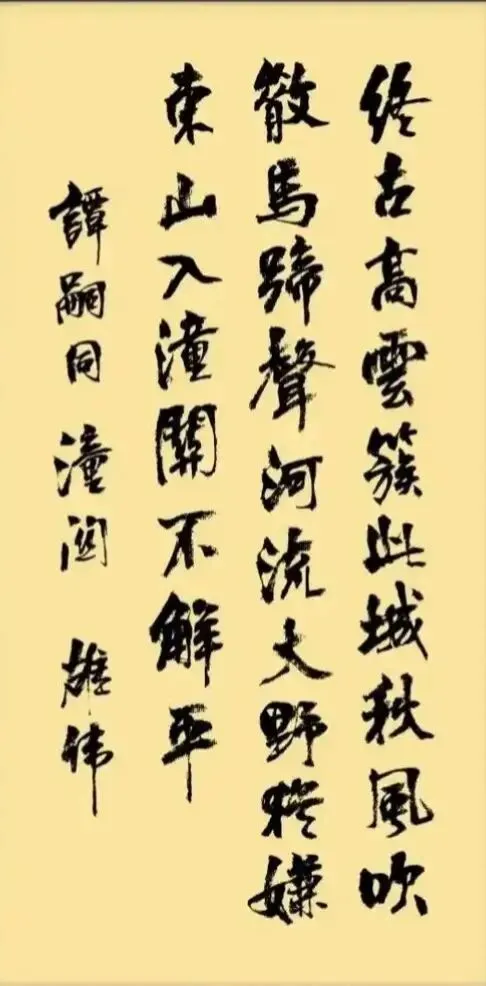 終古高雲簇此城秋風吹
散馬蹄聲河流大野猶嫌
束山入潼關不解平
譚嗣同 潼関 雄伟